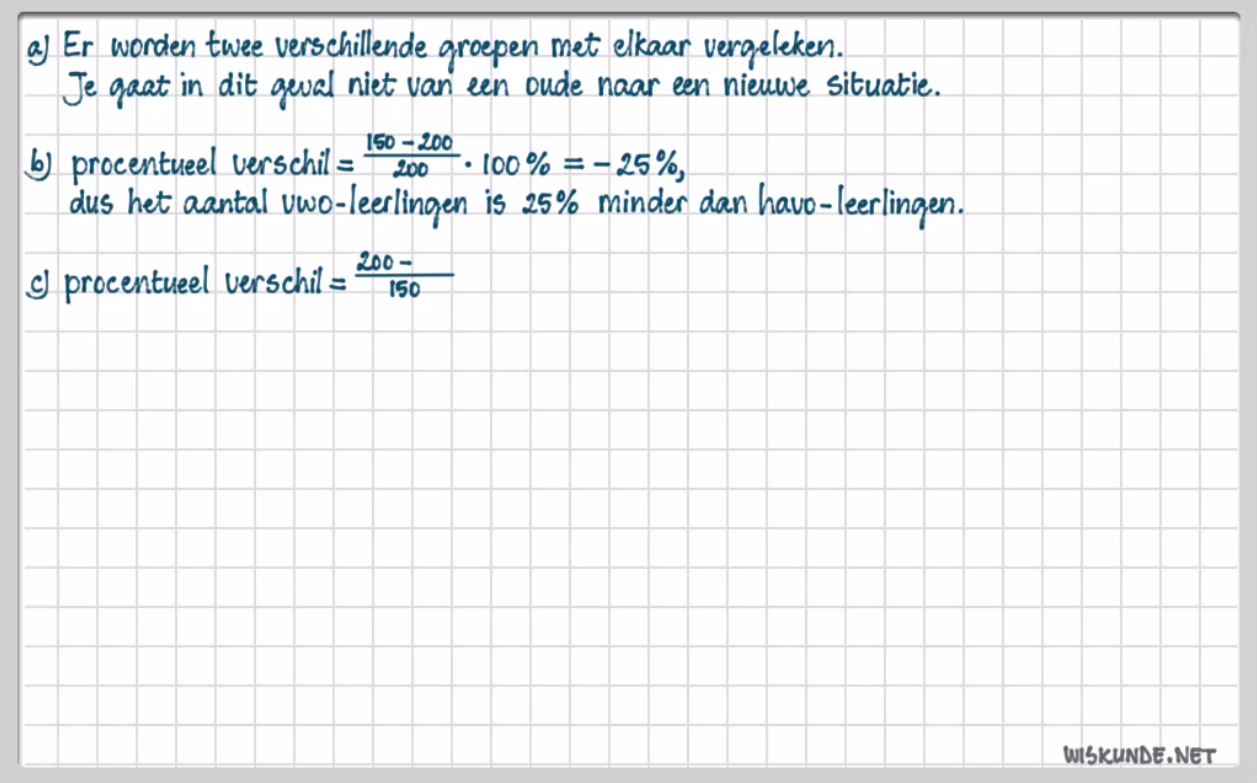 a) Er worden twee verschillende groepen met elkaar vergeleken.
Je gaat in dit geval niet van een oude naar een nieuwe situatie.
b) procentueel verschil = \frac{150 - 200}{200} · 100% = - 25%,
dus het aantal vwo-leerlingen is 25% minder dan havo-leerlingen.
c) procentueel verschil = \frac{200 -}{150}
WISKUNDE.NET